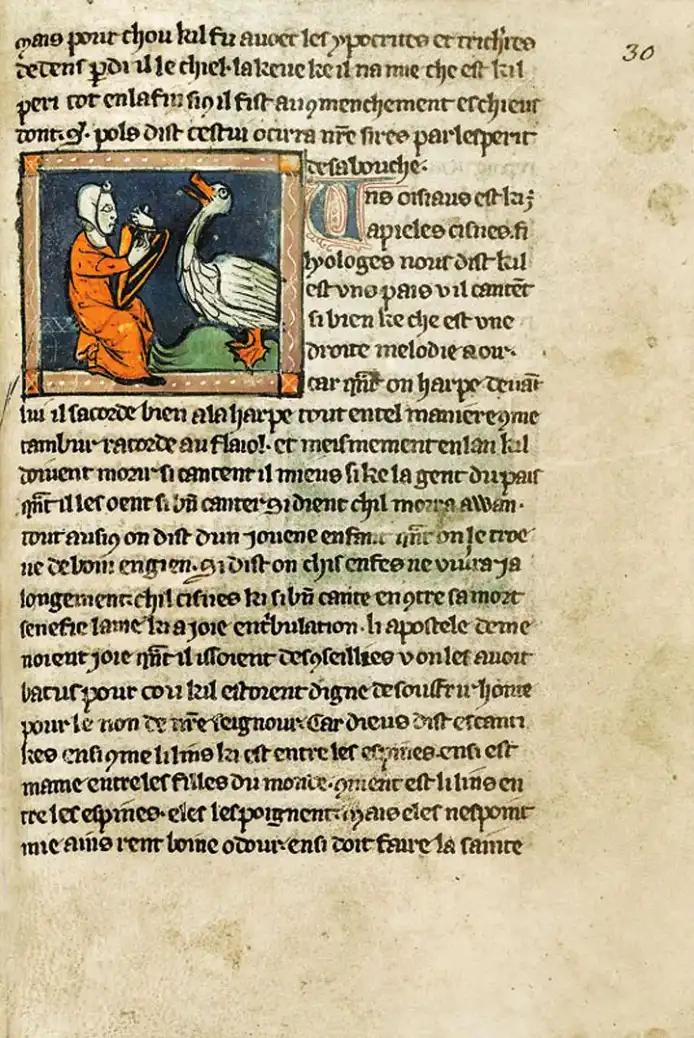 mais pour chou kil fu avoec les ypocrites et trichres
dedens pdi il le chiel. la keue ke il na mie che est kil
peri tot enlafin si9 il fist au 9menchement es chieus
dont. pols dist cestui ocirra nre sires par lesperit
de sa bouche.
30
Uns oisiaus est ki
apieles cisnes. fi
syologes nous dist kil
est uns pais u il cantet
si bien ke che est une
droite melodie a oir.
car qnt on harpe devat
lui il sacorde bien a la harpe tout en tel maniere 9me
tambur racorde au flaiol. et meismement en lan kil
doivent morir si cantent il mieus si ke la gent du pais
qnt il les oent si bn canter si dient chil morra awan.
tout ausi9 on dist dun jouene enfant qnt on le troe
ue de boin engien. Si dist on chis enfes ne vivra ja
longement. chil cisnes ki si bn cante en9tre sa mort
senefie lame ki a joie en tbulation. li apostele deme
noient joie qnt il issoient des 9seilles u on les avoit
batus pour cou kil estoient digne de souffrir honte
pour le non de nre seignour. Car dieus dist es canti
kes ensi 9me li lius ki est entre les espines. ensi est
mame entre les filles du monde. 9ment est li lius en
tre les espines. eles les poignent. mais eles nespoint
mie ains rent boine odour. ensi doit faire la sainte